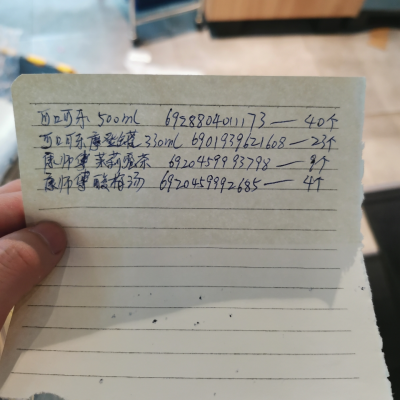 可口可乐 500ml 6928804011173 — 40个
可口可乐摩登罐 330ml 6901939621608 — 23个
康师傅茉莉蜜茶 6920459993798 — 9个
康师傅酸梅汤 6920459992685 — 4个